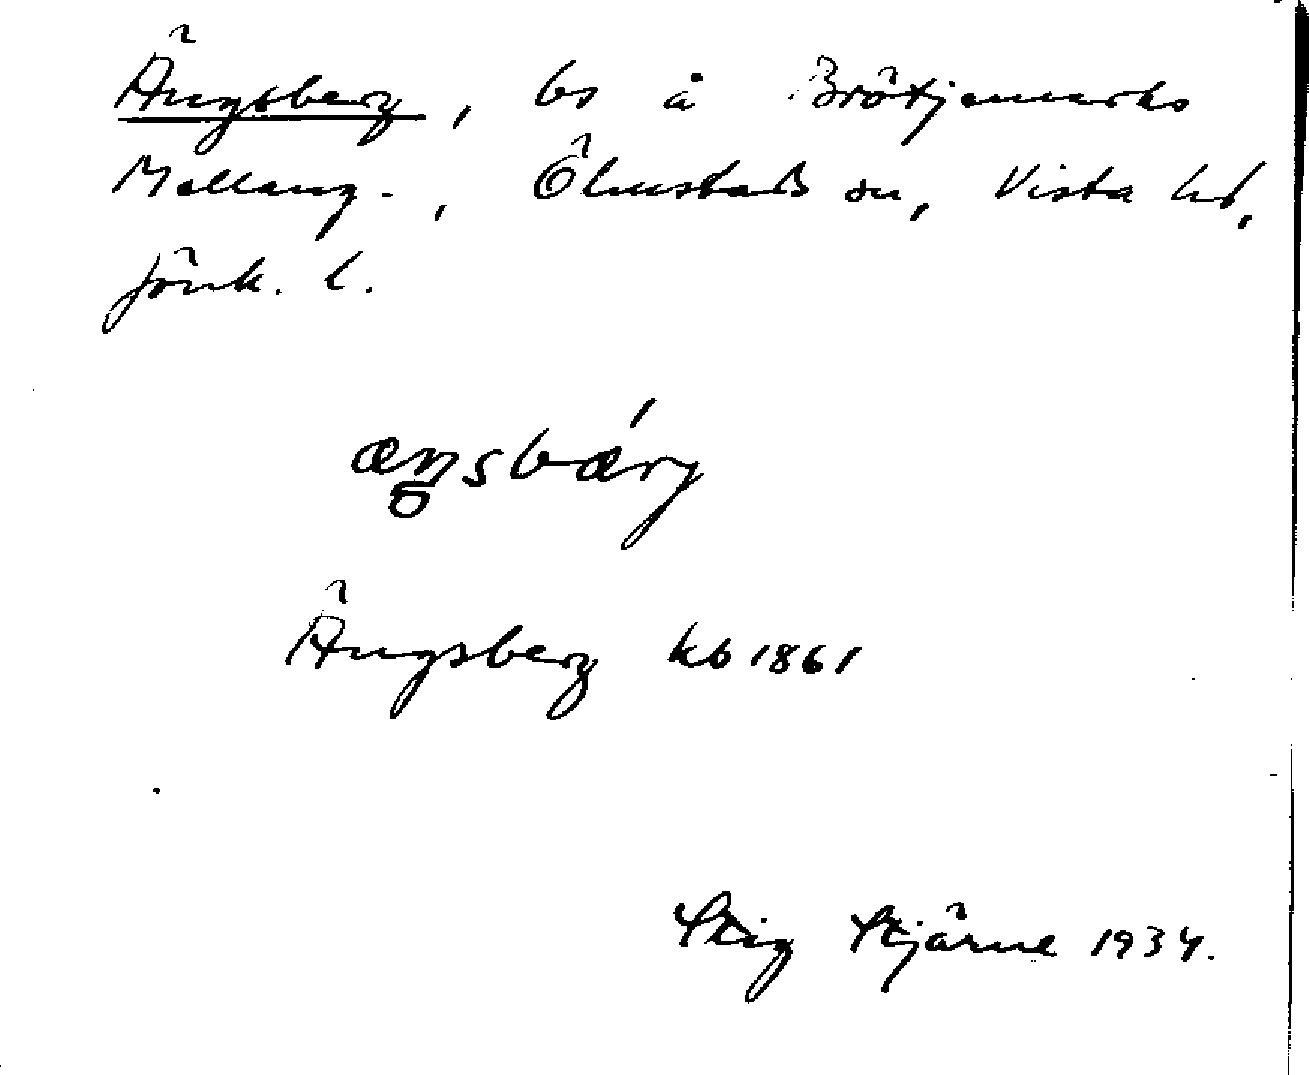 Ängsberg, bs å Brötjemarks
Mellang., Ölmstads sn, Vista hd,
Jönk. l.
æŋsbǽrj
Ängsberg kb 1861
Stig Stjärne 1934.